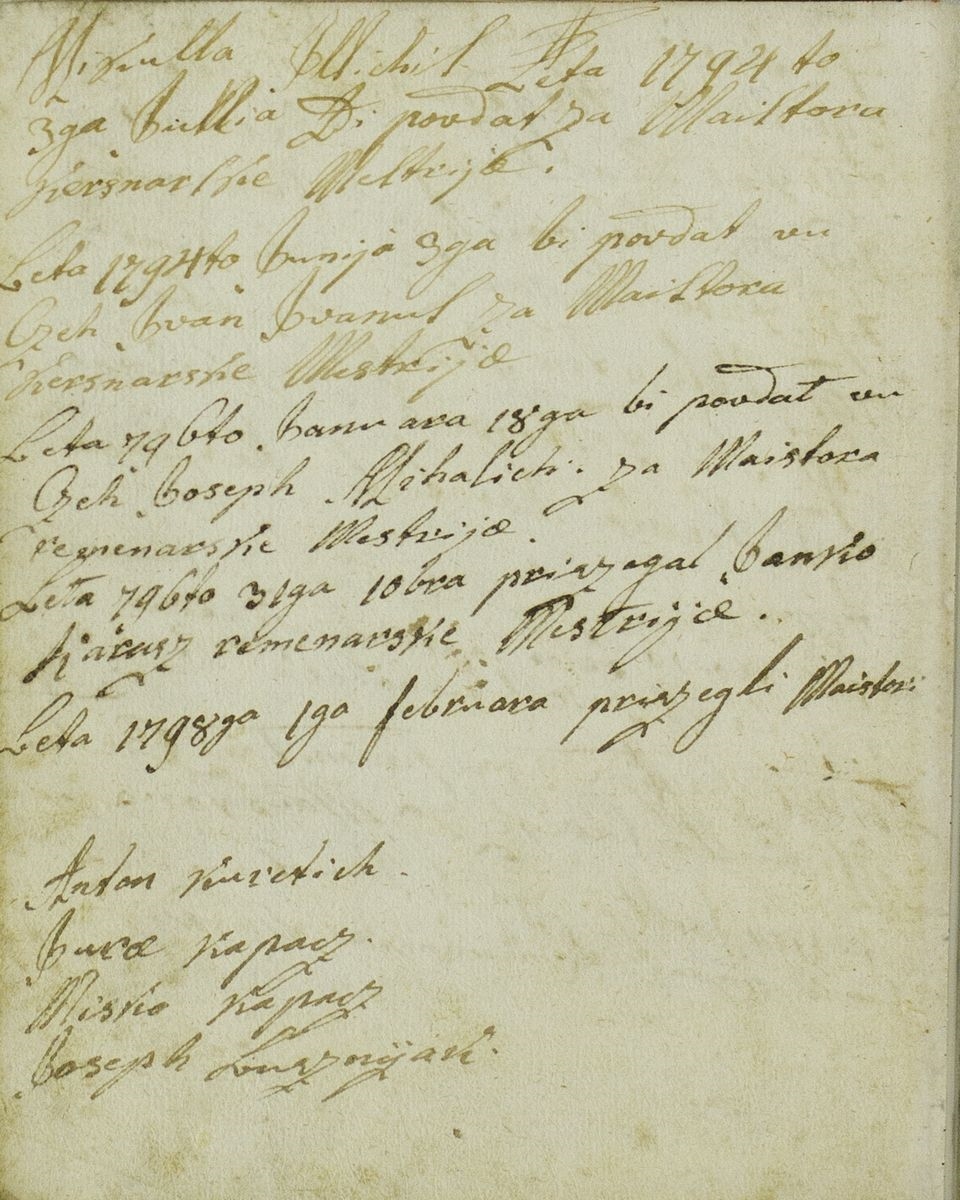 Mikulla Illichich Leta 1794to
3ga Jullia Bi povdat za Maistora
kersnarske Mestrijæ.
Leta 1794to Junija 3ga bi povdat vu
Czeh Ivan Ivanus za Maistora
kersnarske Mestrijæ
Leta 796to Januara 18ga bi povdat vu
Czeh Joseph Mihalich. za Maistora
remenarske Mestrije.
Leta 796to 31ga 10bra priszegal Janko
remenarske Mestrijæ.
Leta 1798ga 1ga februara priszegli Maistori
Anton Kuretich.
Juræ Kapacz.
Misko Kapacz
Joseph Lusznijak.